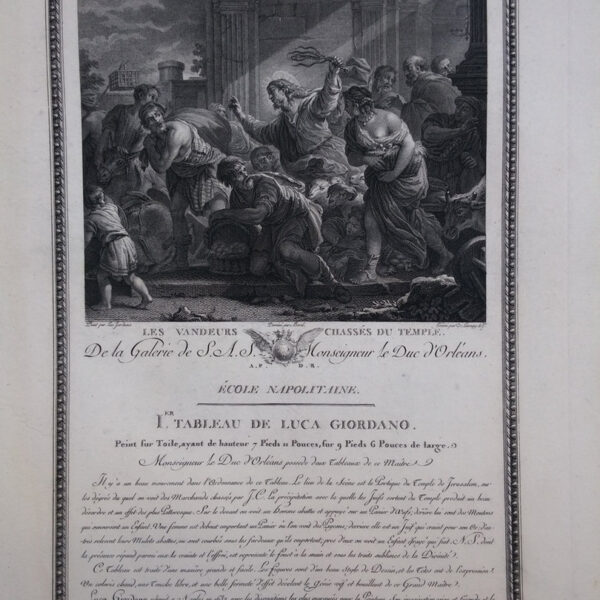 Peint par Luc Jordans
Dessiné par Borel
LES VANDEURS CHASSÉS DU TEMPLE.
De la Galerie de S.A.S. Monseigneur le Duc d'Orléans.
A. P. D. R.
ÉCOLE NAPOLITAINE.
I.ER TABLEAU DE LUCA GIORDANO.
Peint sur Toile, ayant de hauteur 7 Pieds 11 Pouces, sur 9 Pieds 6 Pouces de large.
Monseigneur le Duc d'Orléans possede deux Tableaux de ce Maître
Il y a un beau mouvement dans l'Ordonnance de ce Tableau. Le lieu de la Scène est le Portique du Temple de Jerusalem, sur
les dégrés du quel on voit des Marchands chassés par J.C. La précipitation avec la quelle les Juifs sortent du Temple produit un beau
désordre et un effet des plus Pittoresque. Sur le devant on voit un homme abattu et appuyé sur un Panier d'Œufs, derière lui sont des Moutons
que conservent un Enfant. Une femme est debout emportant un Panier où l'on voit des Pigeons; derriere elle est un Juif qui craint pour son Or; d'au-
tres enlevent leurs Ballots
la présence répand parmi eux la crainte et l'effroi, est représenté le fouet à la main et sous les traits nobles de la Divinité.
Ce Tableau est traité d'une manière grande et facile. Les figures sont d'un beau Style de Dessin, et les Têtes ont de l'expression.
Un coloris chaud, une Touche libre, et une belle fermeté d'effet décelent le Génie vif et bouillant de ce Grand Maître.